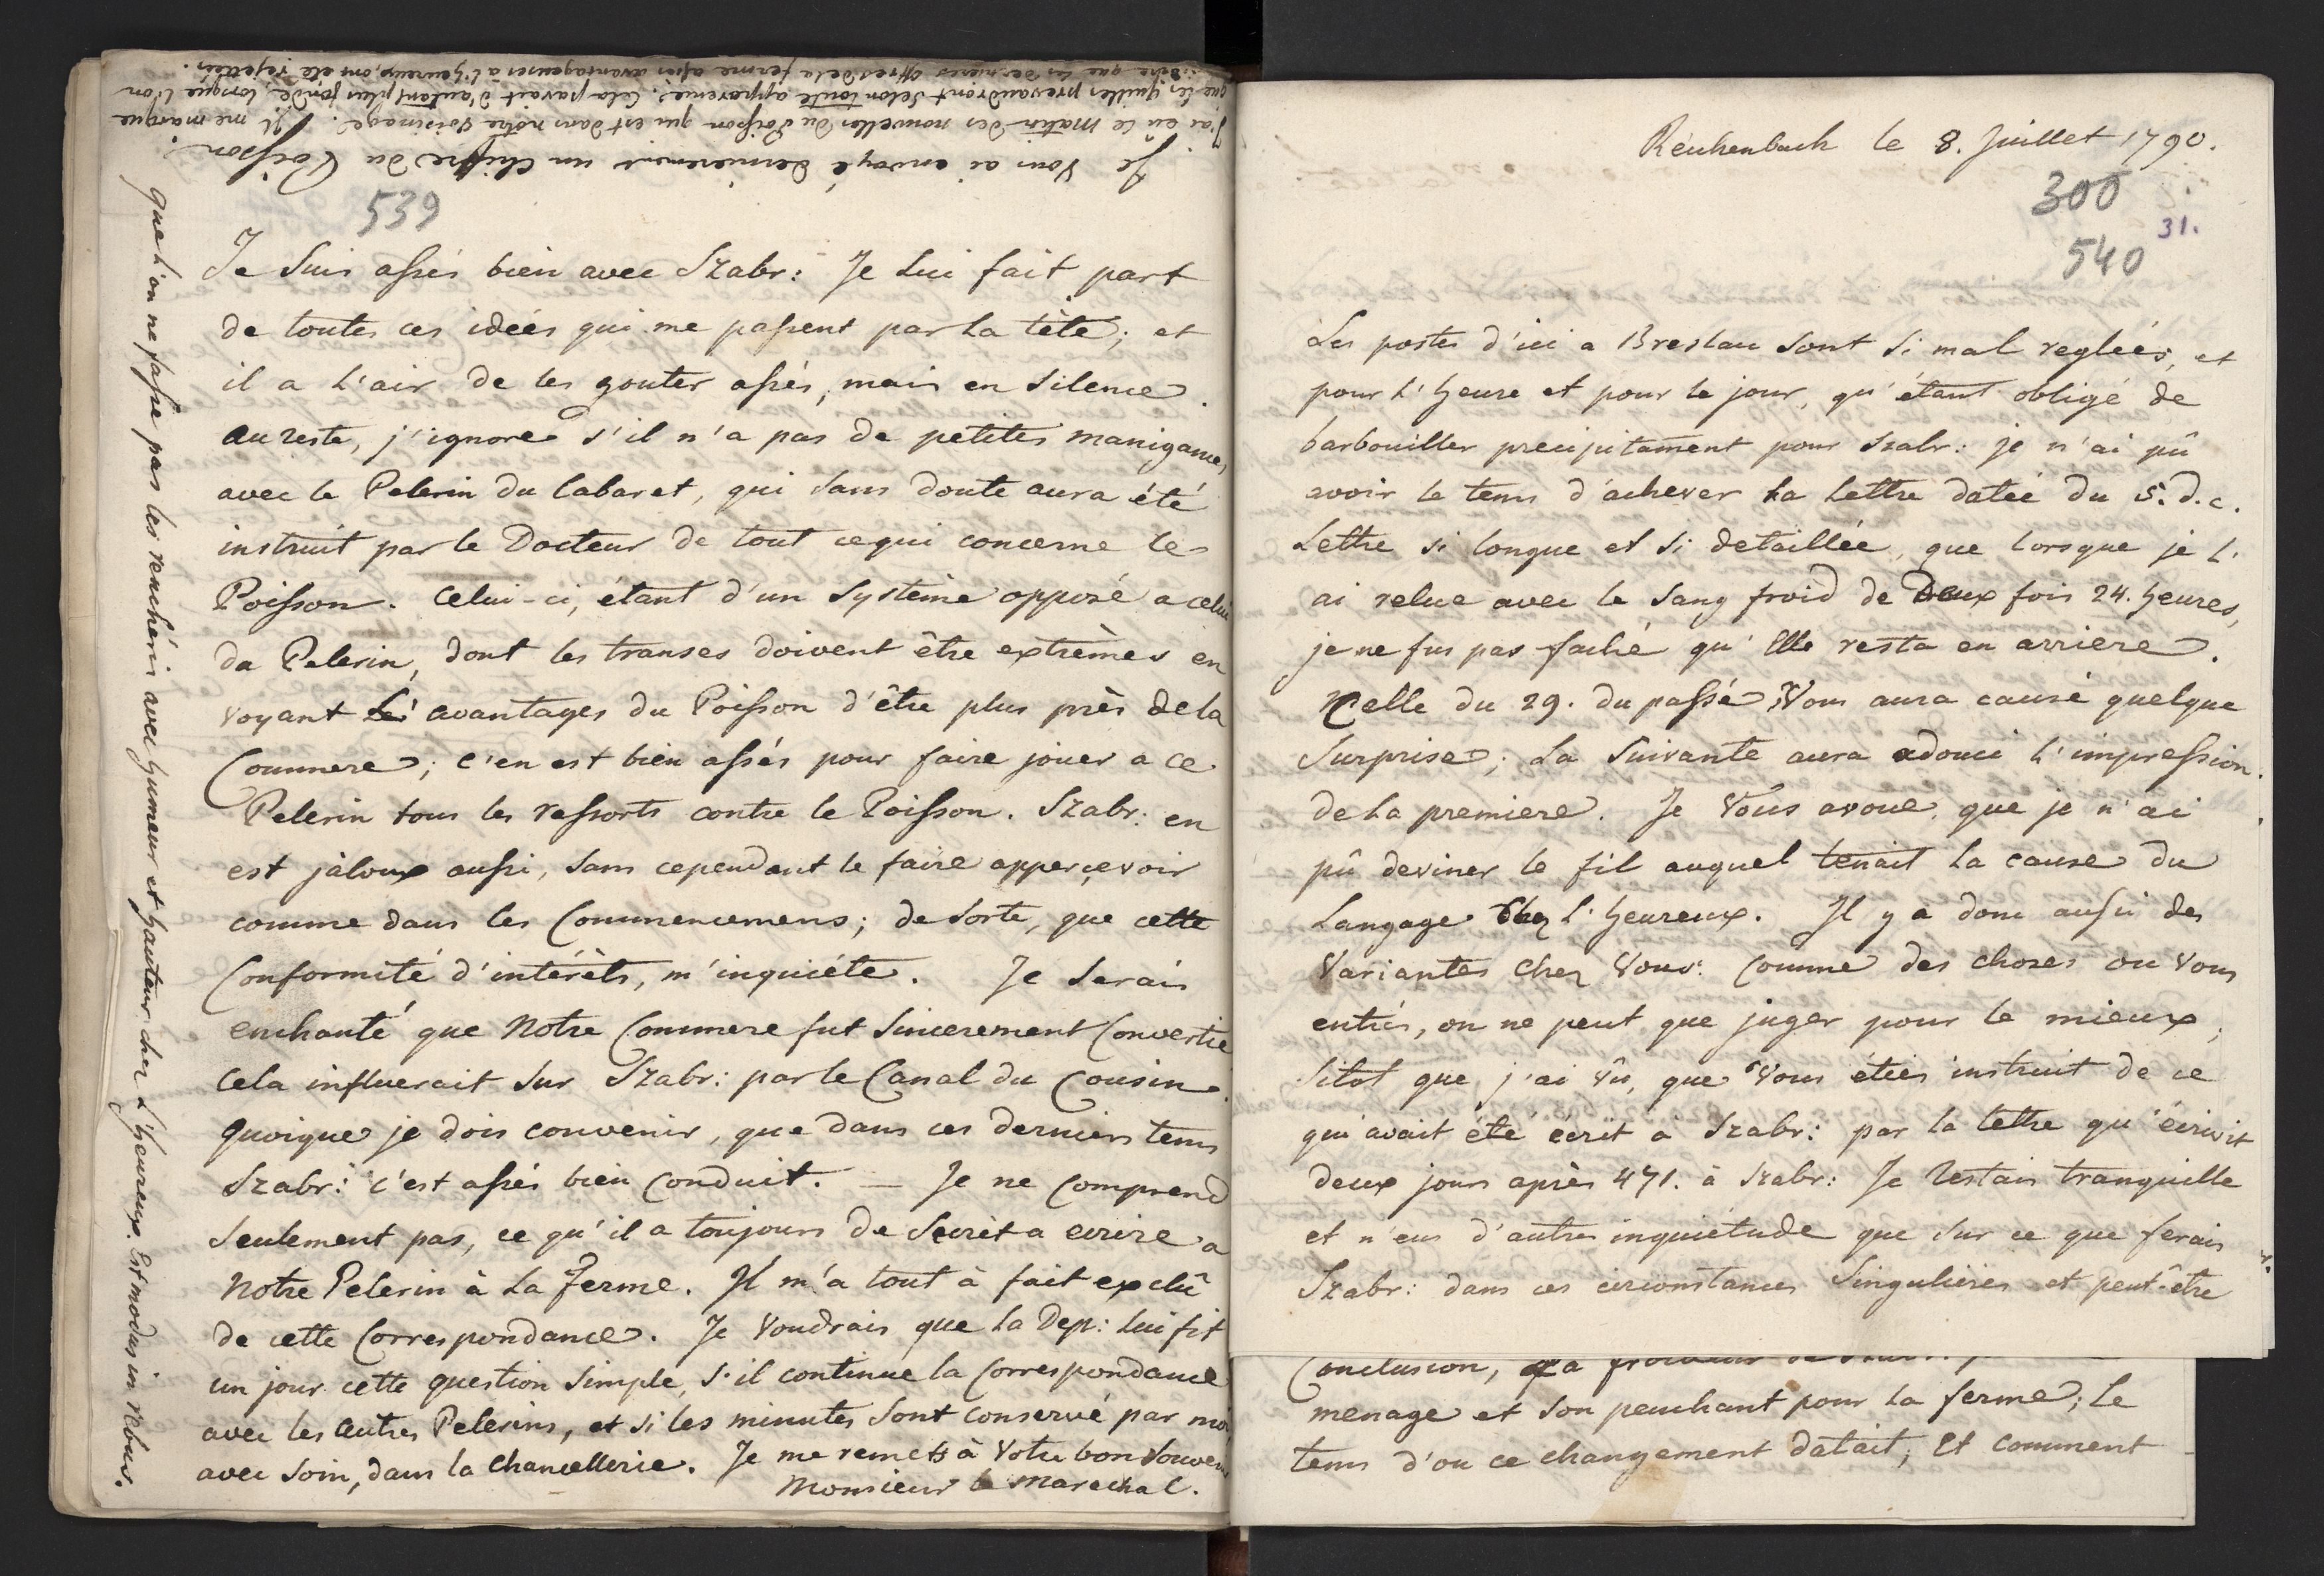 539
Je Suis assés bien avec Szabr: Je Lui fait part
de toutes ces idées qui me passent par la tête; et
il a l'air de les gouter assés, mais en Silence.
au reste, j'ignore s'il n'a pas de petites manigances
avec le Pelerin du Cabaret, qui sans doute aura été
instruit par le Docteur de tout cequi concerne le
Poisson. Celui-ci, étant d'un Systême opposé a celui
du Pelerin, dont les transes doivent être extrèmes en
voyant les avantages du Poisson d'être plus près dela
Commere; c'en est bien assés pour faire jouer a ce
Pelerin tous les ressorts contre le Poisson. Szabr: en
est jaloux aussi, sans cependant le faire apperçevoir
comme dans les Commencemens; de sorte, que cette
Conformité d'intérèts, m'inquiéte. Je serais
enchanté que Notre Commere fut Sincerement Convertie
Cela influerait sur Szabr: par le Canal du Cousin.
quoique je dois convenir, que dans ces derniers tems
Szabr: c'est assés bien Conduit. — Je ne Comprend
seulement pas, ce qu'il a toujours de Secret a ecrire a
Notre Pelerin à la Ferme. Il m'a tout à fait exclû
de cette Correspondance. Je voudrais que la Dep: lui fit
un jour cette question simple, s'il continue la Correspondance
avec les autres Pelerins, et si les minutes sont conservé par moi
avec soin, dans la Chancellerie. Je me remets à Votre bon Souvenir
Monsieur le Marechal.
Je Vous ai envoyé dernierement un Chiffre du Poisson.
J'ai eu ce matin des nouvelles du Poisson qui est dans notre voisinage. Il me marque
que les quilles prevaudront selon toute apparence. Cela parait d'autant plus fondé, lorsque l'on
dire que les dernieres offres de la ferme assés avantageuses a l'heureux, ont été rejettées.
que l'on ne fasse pas les renchéris avec humeur et hauteur chez L'heureux. Est modus in rebus.
Reichenbach le 8. Juillet 1790.
300
31.
540
Les postes d'ici a Breslau sont si mal reglées, et
pour l'heure et pour le jour, qu'étant obligé de
barbouiller precipitament pour Szabr: je n'ai pû
avoir le tems d'achever la Lettre datée du 5. d. c.
Lettre si longue et si detaillée, que lorsque je l'
ai relue avec le sang froid de Deux fois 24. heures,
je ne fus pas faché qu'Elle resta en arriere.
Celle du 29. du passé Vous aura causé quelque
Surprise; la Suivante aura adouci l'impression
de la premiere. Je Vous avoue, que je n'ai
pû deviner le fil auquel tenait la cause du
Langage chez l'heureux. Il y a donc aussi des
Variantes chez Vous: Comme des choses ou Vous
entrés, on ne peut que juger pour le mieux;
Sitot que j'ai vû, que Vous étiés instruit de ce
qui avait été écrit a Szabr: par la lettre qu'écrivit
deux jours après 471. à Szabr: Je restais tranquille
et n'eus d'autre inquiétude que sur ce que ferais
Szabr: dans ces circonstances Singulieres et peut-être
Conclusion,
menage et son penchant pour la ferme; le
tems d'ou ce changement datait; Et comment